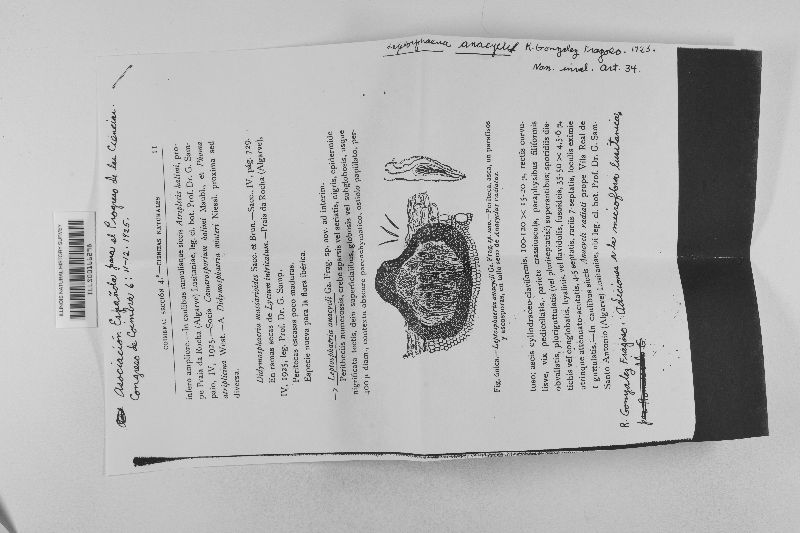 Leptosphaeria anacycli R. Gonzalez Fragoso. 1925.
Nom. inval. Art. 34.
Asociacion Española para el Progreso de las Ciencias.
Congreso de Coimbra 6: 11-12. 1925.
ILLINOIS NATURAL HISTORY SURVEY
COIMBRA. SECCIÓN 4.ª—CIENCIAS NATURALES 11
infero ampliore.—In caulibus ramulisque siccis Atriplicis halimi, pro-
pe Praia da Rocha (Algarve) Lusitaniae, leg. cl. bot. Prof. Dr. G. Sam-
paio, IV, 1925.—Socia Camarosporium halimi Maubl., et Phoma
atriplicina Westd.—A Didymosphaeria minori Niessl. proxima sed
diversa.
Didymosphaeria massarioides Sacc. et Brun.—Sacc., IV, pág. 729.
En ramas secas de Lycium intricatum.—Praia da Rocha (Algarve),
IV, 1925, leg. Prof. Dr. G. Samp.
Peritecas escasas poco maduras.
Especie nueva para la flora ibérica.
→ Leptosphaeria anacycli Gz. Frag. sp. nov. ad interim.
Peritheciis numerosis, crebe sparsis vel seriatis, nigris, epidermide
nigrificata tectis, dein superficialibus, globosis vel subglobosis, usque
400 µ diam., contextu obscure parenchymatico, ostiolo papillato, per-
Fig. única.—Leptosphaeria anacycli Gz. Frag. sp. nov.—Periteca, asca, un parafisos
y ascosporas, en tallo seco de Anacyclus radiatus.
tuso; ascis cylindraceo-claviformis, 100-120 × 15-20 µ, rectis curvu-
lisve, vix pedicellatis, parieto crassiuscula, paraphysibus filiformis
obvallatis, pluriguttulatis (vel pluriseptatis?) superantibus; sporidiis dis-
tichis vel conglobatis, hyalinis vel flavidulis, fusoideis, 35-50 × 4,5-6 µ,
utrinque attenuato-acutatis, 4-5 septatis, rariis 7 septatis, loculis eximie
1 guttulatis.—In caulibus siccis Anacycli radiati prope Vila Real de
Santo Antonio (Algarve) Lusitaniae, ubi leg. cl. bot. Prof. Dr. G. Sam-
R. Gonzalez Fragoso. Adiciones a la microflora lusitanica,